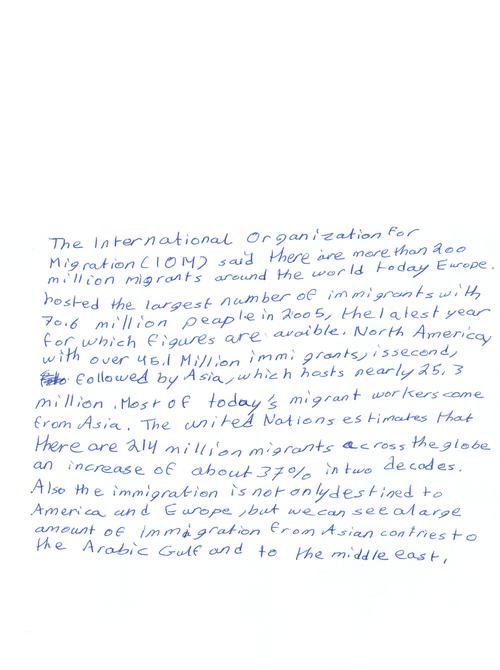 The International Organization For
Migration (IOM) said there are more than 200
million migrants around the world today Europe.
hosted the largest number of immigrants with
70.6 million peaple in 2005, the latest year
for which figures are avaible. North America,
with over 45.1 Million immigrants, is second,
followed by Asia, which hosts nearly 25.3
million. Most of today's migrant workers come
from Asia. The united Nations estimates that
there are 214 million migrants across the globe
an increase of about 37% in two decades.
Also the immigration is not only destined to
America and Europe, but we can see a large
amount of Immigration from Asian contries to
the Arabic Gulf and to the middle east.